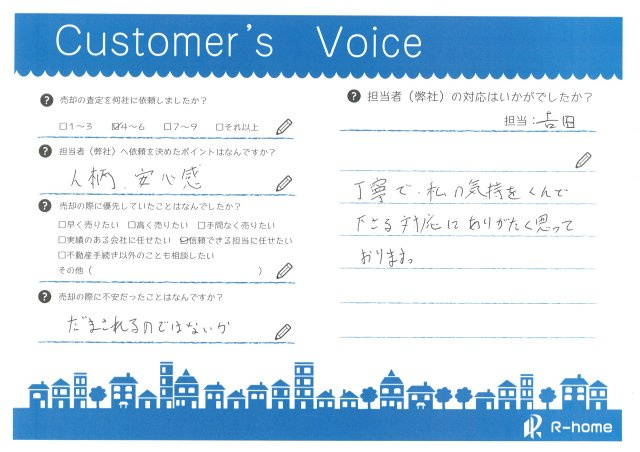 Customer's Voice
? 売却の査定を何社に依頼しましたか？
□1～3 ☑4～6 □7～9 □それ以上
? 担当者（弊社）へ依頼を決めたポイントはなんですか？
人柄、安心感
? 売却の際に優先していたことはなんでしたか？
□早く売りたい □高く売りたい □手間なく売りたい
□実績のある会社に任せたい ☑信頼できる担当に任せたい
□不動産手続き以外のことも相談したい
その他（ ）
? 売却の際に不安だったことはなんですか？
だまされるのではないか
? 担当者（弊社）の対応はいかがでしたか？
担当：吉田
丁寧で、私の気持をくんで
下さる対応にありがたく思って
おります。
R-home